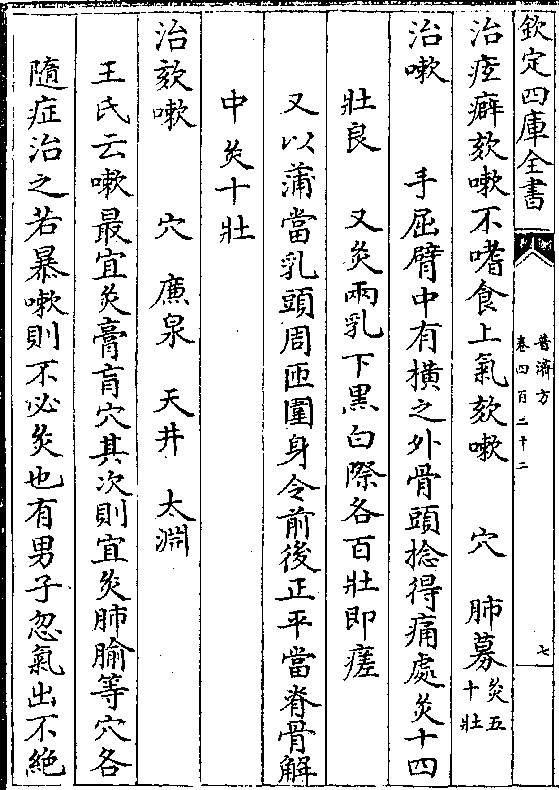 欽定四庫全書
普濟方
卷四百二十二
七
治痃癖欬嗽不嗜食上氣欬嗽 穴 肺募灸五十壯
治嗽 手屈臂中有橫之外骨頭捻得痛處灸十四
壯良 又灸兩乳下黑白際各百壯即瘥
又以蒲當乳頭周匝圍身令前後正平當脊骨解
中灸十壯
治欬嗽 穴 廉泉 天井 太淵
王氏云嗽最宜灸膏肓穴其次則宜灸肺腧等穴各
隨症治之若暴嗽則不必灸也有男子忽氣出不絶